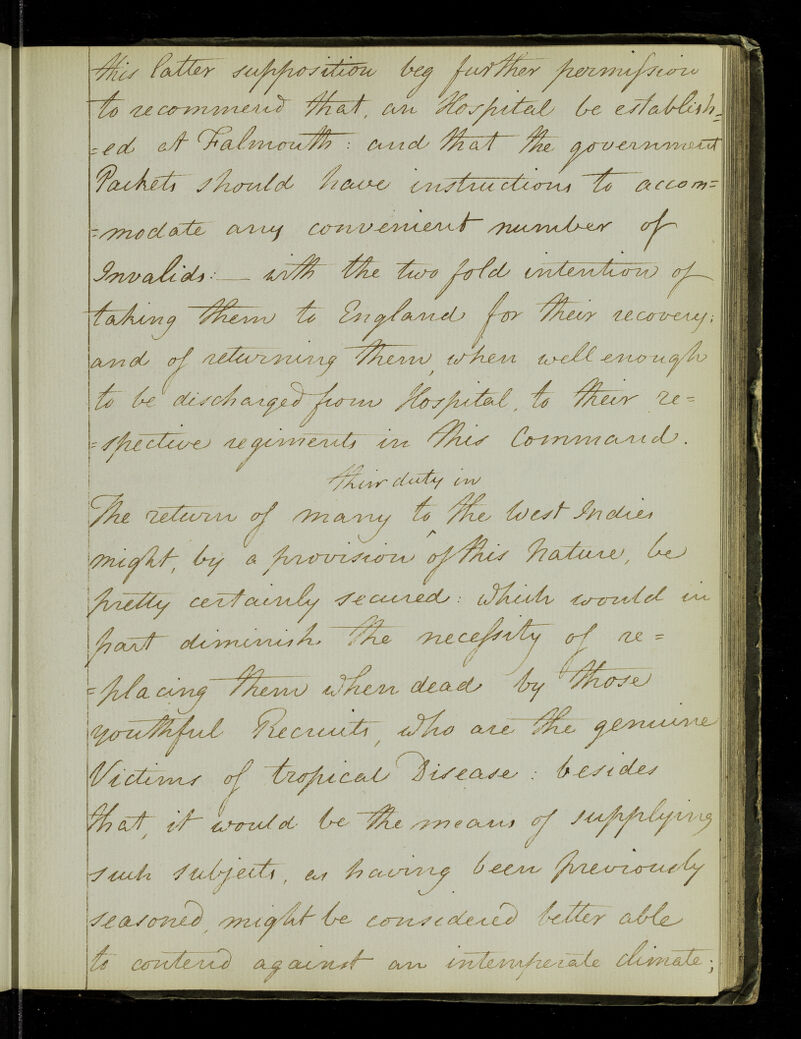 this latter supposition beg further permiſsion
to recommend that, an Hospital be establish=
=ed at Falmouth: and that the government
Packets should have instructions to accom=
=modate any convenient number of
Invalids:— with the two fold intention of
taking them to England for their recovery;
and of returning them, when well enough
to be discharged from Hospital, to their re=
=spective regiments in this Command.
their duty in
The return of many to ^ the West Indies
might, by a provision of this Nature, be
pretty certainly secured: which would in
part diminish the neceſsity of re=
=placing them when dead by those
youthful Recruits, who are the genuine
Victims of tropical Disease: besides
that, it would be the means of supplying
such subjects, as having been previously
seasoned, might be considered better able
to contend against an intemperate climate;